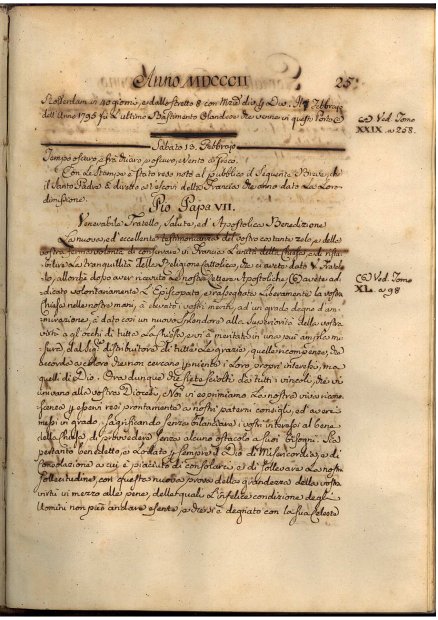 Anno MDCCCII
25
Rotterdam in 40 giorni, e dallo stretto 8 con
7 Febbrajo
dell'Anno 1795 fu l'ultimo Bastimento Olandese che venne in questo Porto
Ved. Tomo
XXIX. a 258.
Sabato 13. Febbrajo
Tempo oscuro, e fra chiaro, ed oscuro, e Vento
Con le Stampe è stato reso noto al pubblico il Seguente Breve, che
il Santo Padre à diretto a' Vescovi della Francia che anno dato la Loro
dimissione.
Pio Papa VII.
Venerabile Fratello, Salute, ed Apostolica Benedizione
La nuova, ed eccellente testimonianza del vostro costante zelo, e della
vostra ferma volontà di conservare in Francia l'unità della Chiesa, e di rista-
bilire la tranquillità della Religione Cattolica, che ci avete dato V. Fratel-
lo, allorchè dopo aver ricevute le nostre Lettere Apostoliche, avete ab-
dicato volontariamente l'Episcopato, e rassegnato liberamente la vostra
Chiesa nelle nostre mani, à elevati i vostri meriti ad un grado degno d'am-
mirazione, à dato con un nuovo splendore alla superiorità della vostra
virtù a gl'occhi di tutta la Chiesa, e vi à meritato in una più ampla mi-
sura dal Sig.e distributore di tutte le grazie, quelle ricompense, che
accorda a coloro che non cercano i Loro proprj interessi, ma
quelli di Dio. Ora dunque che siete sciolti da tutti i vincoli, che vi
univano alla vostra Diocesi, Noi vi esprimiamo la nostra viva ricono-
scenza per esservi resi prontamente a' nostri paterni consigli, ed averci
messi in grado, sagrificando senza bilanciare i vostri interessi al bene
della Chiesa di provvedere senza alcuno ostacolo a' suoi bisogni. Sia
pertanto benedetto, e Lodato per sempre il Dio di Misericordia, e di
consolazione, a cui è piaciuto di consolare, e di sollevare la nostra
sollecitudine, con questa nuova prova della grandezza della vostra
virtù in mezzo alle pene, dalle quali l'infelice condizione degli
Uomini non può andare esente, e che si è degnato con la sua Celeste
Ved. Tomo
XL. a 98